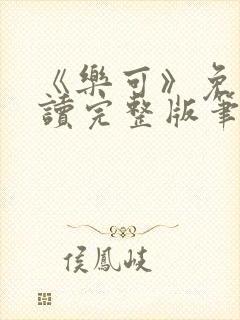 《樂可》免
讀完整版筆
侯鳳岐